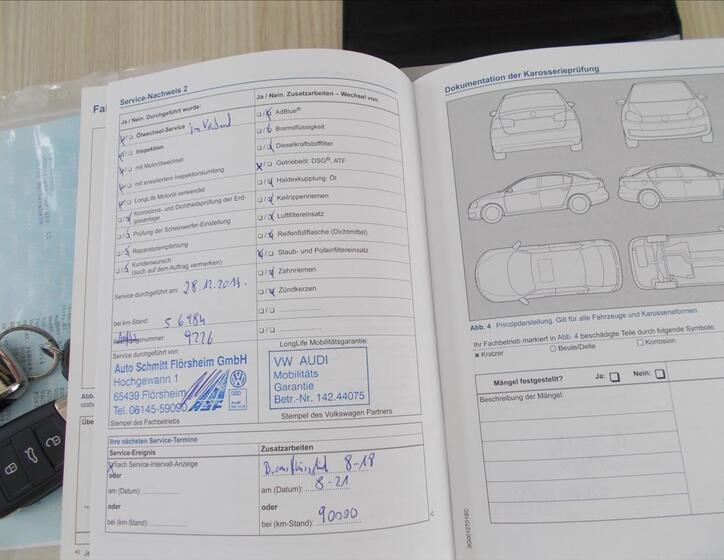 Service-Nachweis 2
Ja / Nein. Durchgeführt wurde:
Ölwechsel-Service
Inspektion
mit Motorölwechsel
mit erweitertem Inspektionsumfang
LongLife Motoröl verwendet
Korrosions- und Dichtheitsprüfung der Erd-
gasanlage
Prüfung der Scheinwerfer-Einstellung
Reparaturempfehlung
Kundenwunsch
(auch auf dem Auftrag vermerken)
Service durchgeführt am: 28.12.2017.
bei km-Stand: 56984
nummer: 9226
Service durchgeführt von:
Auto Schmitt Flörsheim GmbH
Hochgewann 1
65439 Flörsheim
Tel. 06145-59090
ASF
Audi
Service
Stempel des Fachbetriebs
Ja / Nein. Zusatzarbeiten – Wechsel von:
AdBlue®
Bremsflüssigkeit
Dieselkraftstofffilter
Getriebeöl: DSG®, ATF
Haldexkupplung: Öl
Keilrippenriemen
Luftfiltereinsatz
Reifenfüllflasche (Dichtmittel)
Staub- und Pollenfiltereinsatz
Zahnriemen
Zündkerzen
LongLife Mobilitätsgarantie:
VW AUDI
Mobilitäts
Garantie
Betr.-Nr. 142.44075
Stempel des Volkswagen Partners
Ihre nächsten Service-Termine
Service-Ereignis
Nach Service-Intervall-Anzeige
oder
am (Datum):
oder
bei (km-Stand):
Zusatzarbeiten
8-18
am (Datum): 8-21
oder
bei (km-Stand): 90000
Dokumentation der Karosserieprüfung
Abb. 4 Prinzipdarstellung. Gilt für alle Fahrzeuge und Karosserieformen.
Ihr Fachbetrieb markiert in Abb. 4 beschädigte Teile durch folgende Symbole:
× Kratzer Beule/Delle Korrosion
Mängel festgestellt? Ja: Nein:
Beschreibung der Mängel:
3G0012701S0
Abb.